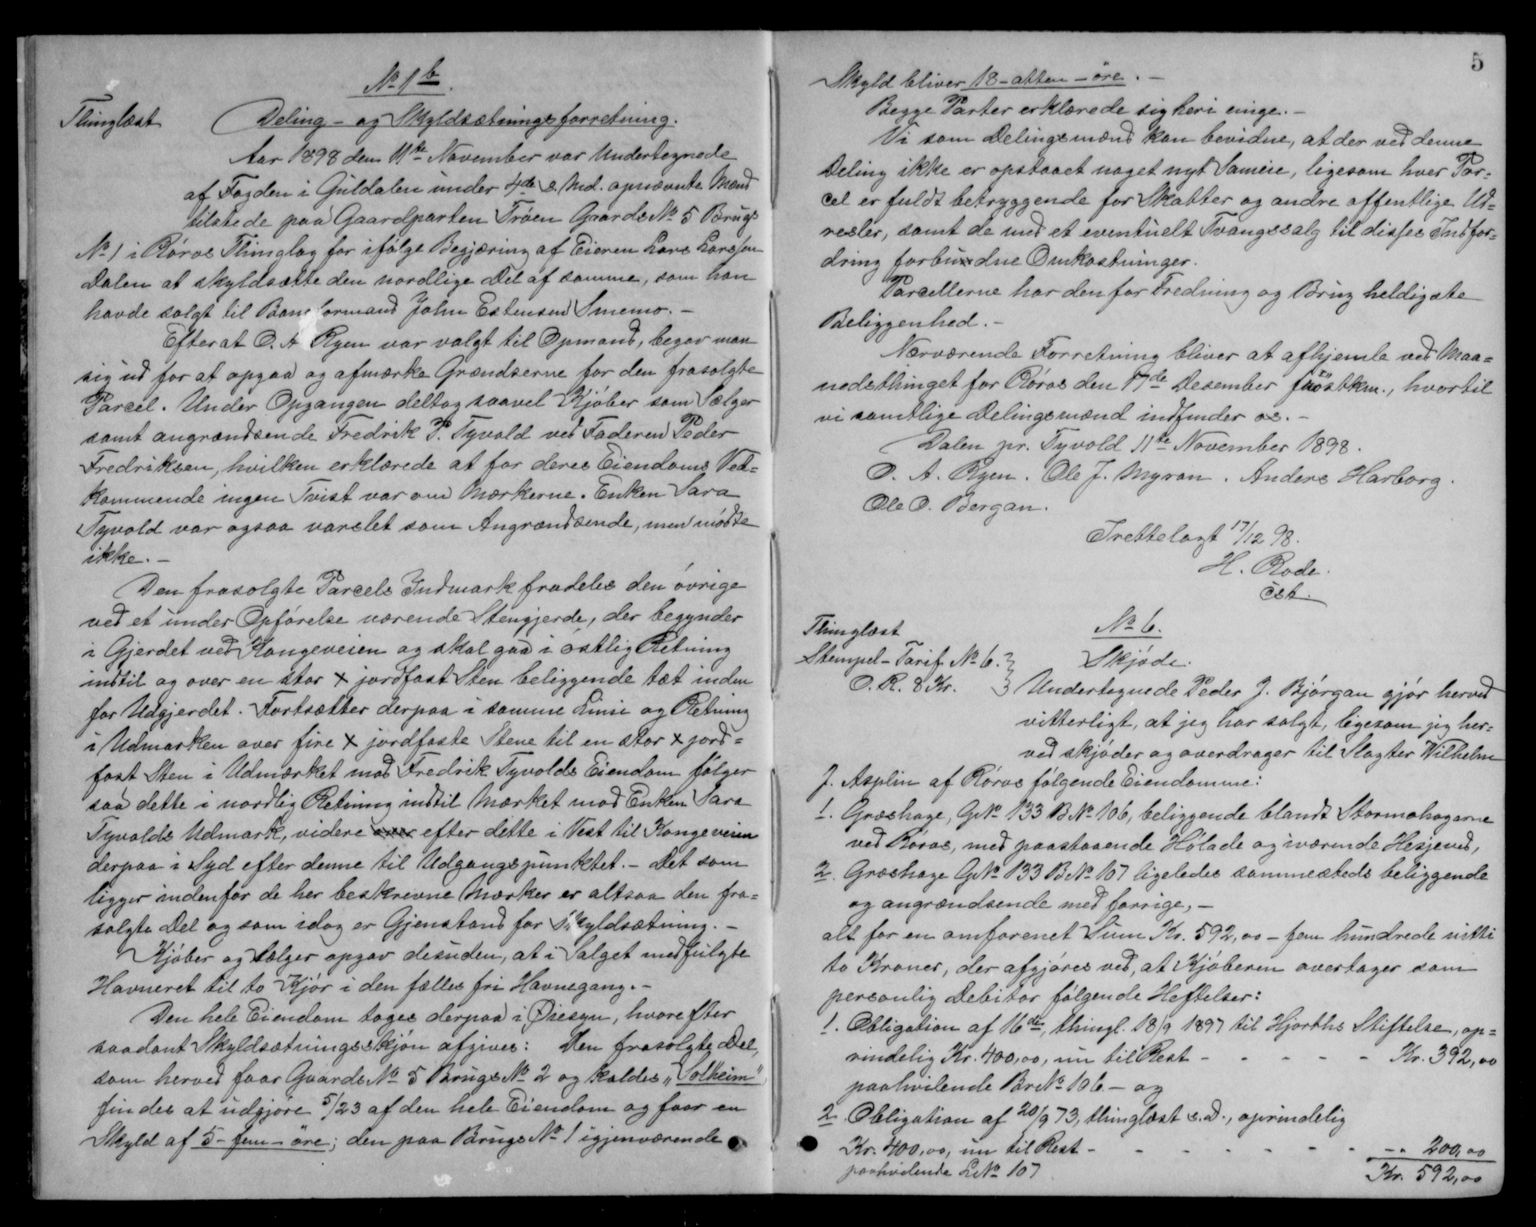 No 1 b.
Thinglæst
Deling- og Skyldsætningsforretning.
Aar 1898 den 11te November var Undertegnede
af Fogden i Guldalen under 4de d. Md. opnævnte Mænd
tilstede paa Gaardparten Trøen Gaards No 5 Brugs
No 1 i Røros Thinglag for ifølge Begjæring af Eieren Lars Larssen
Dalen at skyldsætte den nordlige Del af samme, som han
havde solgt til Baneformand John Estensen Smemo. -
Efterat O. A. Ryen var valgt til Opmand, begav man
sig ud for at opgaa og afmærke Grændserne for den frasolgte
Parcel. Under Opgangen deltog saavel Kjøber som Sælger
samt angrændsende Fredrik P. Tyvold ved Faderen Peder
Fredriksen, hvilken erklærede at for deres Eiendoms Ved-
kommende ingen Tvist var om Mærkerne. Enken Sara
Tyvold var ogsaa varslet som Angrændsende, men mødte
ikke. -
Den frasolgte Parcels Indmark fradeles den øvrige
ved et under Opførelse værende Stengjerde, der begynder
i Gjerdet ved Kongeveien og skal gaa i østlig Retning
indtil og over en stor x jordfast Sten beliggende tæt inden
for Udgjerdet. Fortsætter derpaa i samme Linie og Retning
i Udmarken over fire x jordfaste Stene til en stor x jord-
fast Sten i Udmærket mod Fredrik Tyvolds Eiendom følger
saa dette i nordlig Retning indtil Mærket mod Enken Sara
Tyvolds Udmark, videre over efter dette i Vest til Kongeveien
derpaa i Syd efter denne til Udgangspunktet. - Det som
ligger indenfor de her beskrevne Mærker er altsaa den fra-
solgte Del og som idag er Gjenstand for Skyldsætning. -
Kjøber og Sælger opgav desuden, at i Salget medfulgte
Havneret til to Kjør i den fælles fri Havnegang. -
Den hele Eiendom toges derpaa i Øiesyn, hvorefter
saadant Skyldsætningsskjøn afgives: Den frasolgte Del,
som herved faar Gaards No 5 Brugs No 2 og kaldes „Solheim"
findes at udgjøre 5/23 af den hele Eiendom og faar en
Skyld af 5 - fem - øre; den paa Brugs No 1 igjenværende
5
Skyld bliver 18 - atten - øre. -
Begge Parter erklærede sig heri enige. -
Vi som Delingsmænd kan bevidne, at der ved denne
Deling ikke er opstaaet noget nyt Sameie, ligesom hver Par-
cel er fuldt betryggende for Skatter og andre offentlige Ud-
redsler, samt de med et eventuelt Tvangssalg til disses Indfor-
dring forbundne Omkostninger.
Parcellerne har den for Fredning og Brug heldigste
Beliggenhed. -
Nærværende Forretning bliver at afhjemle ved Maa-
nedsthinget for Røros den 17de Desember førstkm., hvortil
vi samtlige Delingsmænd indfinder os. -
Dalen pr. Tyvold 11te November 1898.
O. A. Ryen. Ole J. Myran. Anders Harborg.
Ole O. Bergan.
Irettelagt 17/12 98.
H. Rode.
cst.
Thinglæst
No 6.
Stempel-Tarif No 6.
Skjøde.
O. R. 8 Kr.
Undertegnede Peder J. Bjørgan gjør herved
vitterligt, at jeg har solgt, ligesom jeg her-
ved skjøder og overdrager til Slagter Wilhelm
J. Asplin af Røros følgende Eiendomme:
1. Græshage, G No 133 B No 106, beliggende blandt Stormohagerne
ved Røros, med paastaaende Hølade og iværende Hesjeved,
2. Græshage G No 133 B No 107 ligeledes sammesteds beliggende
og angrændsende med forrige, -
alt for en omforenet Sum Kr. 592,00 - fem hundrede nitti
to Kroner, der afgjøres ved, at Kjøberen overtager som
personlig Debitor følgende Heftelser:
1. Obligation af 16de, thingl. 18/9 1897 til Hjorths Stiftelse, op-
rindelig Kr. 400,00, nu til Rest - - - - - Kr. 392,00
paahvilende Br No 106 - og
2. Obligation af 20/9 73, thinglæst s. d., oprindelig
Kr. 400,00, nu til Rest - - - - - - - -.. 200,00
paahvilende L No 107
Kr. 592,00